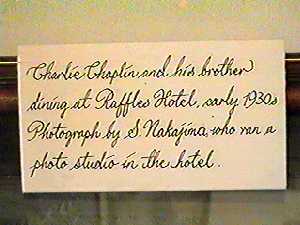 Charlie Chaplin and his brother
dining at Raffles Hotel, early 1930s
Photograph by S. Nakajima, who ran a
photo studio in the hotel.